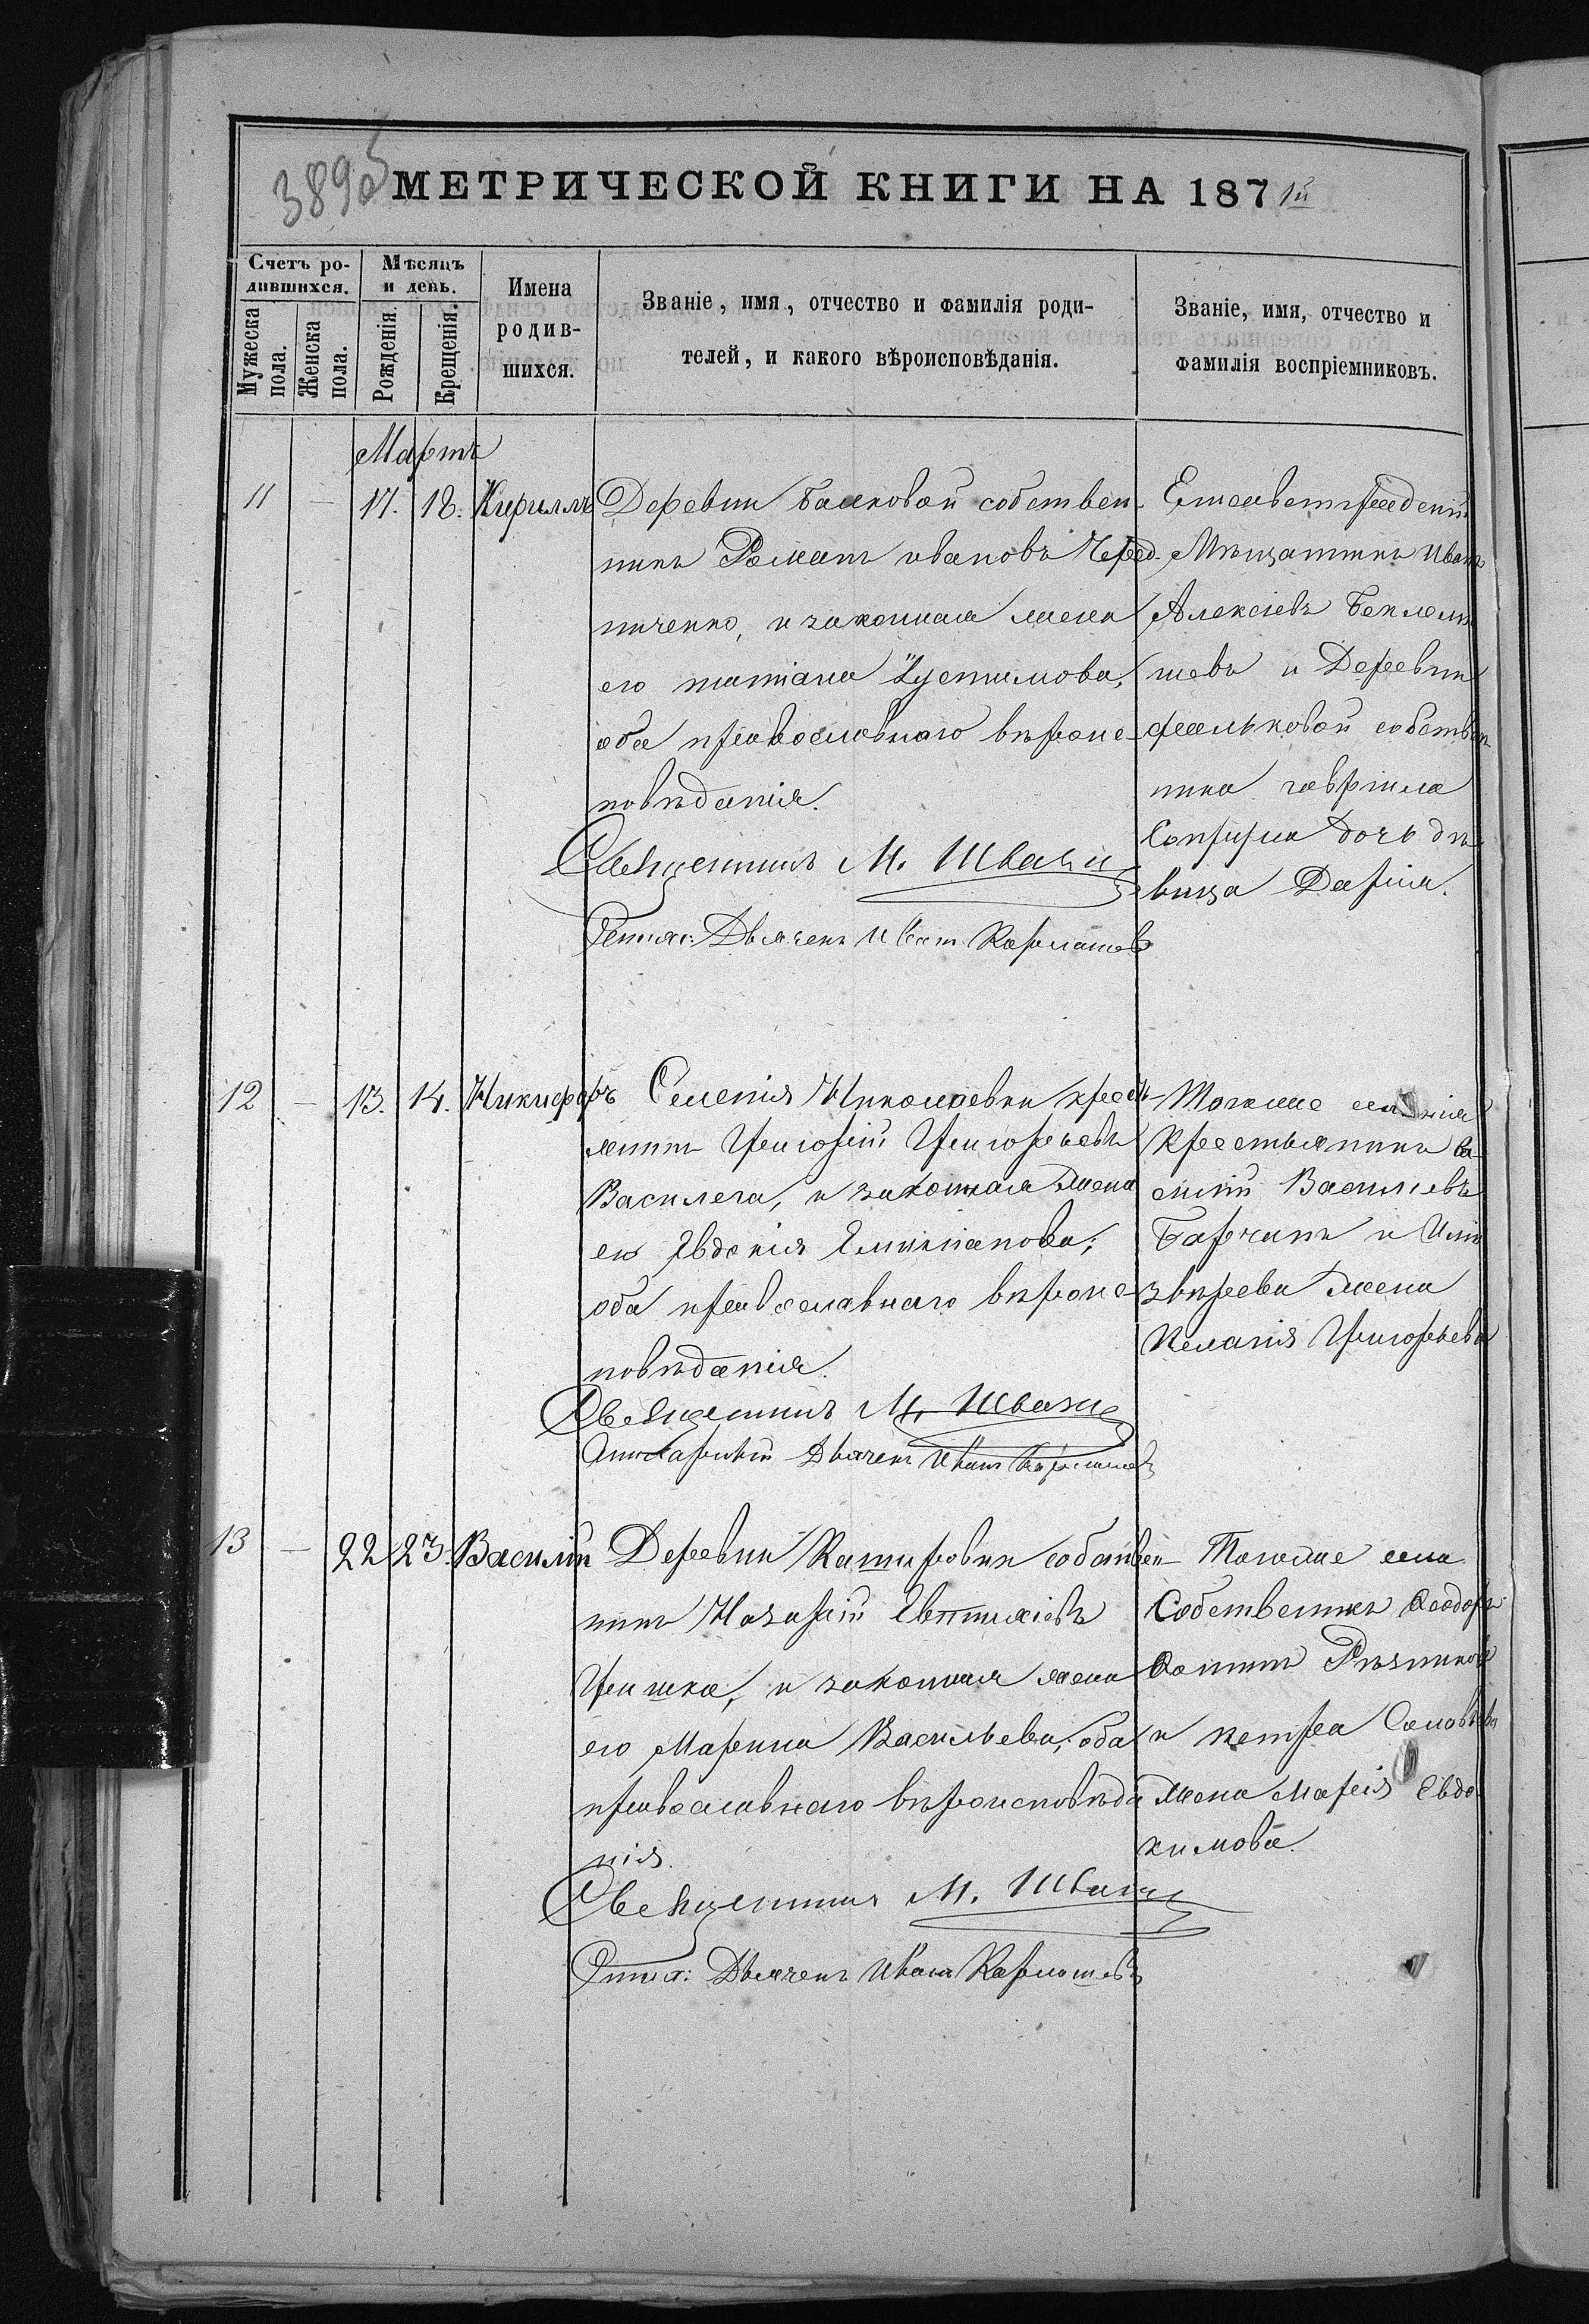 3895
МЕТРИЧЕСКОЙ КНИГИ НА 1871й
Счетъ ро-
дившихся.
Мужеска
пола.
Женска
пола.
Мѣсяцъ
и день.
Рожденія.
Крещенія.
Имена
родив-
шихся.
Званіе, имя, отчество и фамилія роди-
телей, и какого вѣроисповѣданія.
Званіе, имя, отчество и
фамилія воспріемниковъ.
Мартъ
11 — 17. 18. Кириллъ
Деревни Балковой собствен-
никъ Романъ Ивановъ Черед-
ниченко, и законная жена
его татіана Іустимова,
оба православнаго вѣроис-
повѣданія.
Священникъ М. Швачи
Дьячекъ Иванъ Кармашевъ
Елисаветградскій
Мѣщанинъ Иванъ
Алексіевъ Беклеми
шевъ и Деревни
собствен
ника гавріила
дочь дѣ-
вица Дарія.
12 — 13. 14. Никифоръ
Селенія Николаевки кресть-
янинъ Григорій Григорьевъ
Василега, и законная жена
его Евдокія Емиліанова;
оба православнаго вѣроис-
повѣданія.
Священникъ М. Швачи
Дьячекъ Иванъ Кармашевъ
Тогоже селенія
Крестьянинъ Ва-
силій Васильевъ
Барчанъ и Иліи
звѣрева жена
Пелагія Григорьева
13 — 22 23. Василій
Деревни Катировки собствен-
никъ Назарій Евтихіевъ
Гришка, и законная жена
его Марина Васильева, оба
православнаго вѣроисповѣда
нія.
Священникъ М. Швачи
Дьячекъ Иванъ Кармашевъ
Тогоже села
Собственникъ Ѳеодоръ
Ѳоминъ Рѣзниковъ
и петра Соловьева
жена Марія Евдо-
кимова.